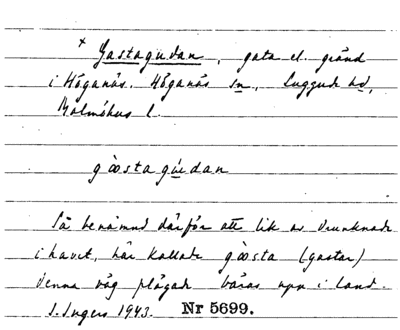 × Gastagudan, gata el. gränd
i Höganäs. Höganäs sn., Luggude hd,
Malmöhus l.
gòostagúdan
Så benämnd därför att lik av drunknade
i havet, här kallade gòosta (gastar)
denna väg plägade bäras upp i land.
I. Ingers 1943. Nr 5699.